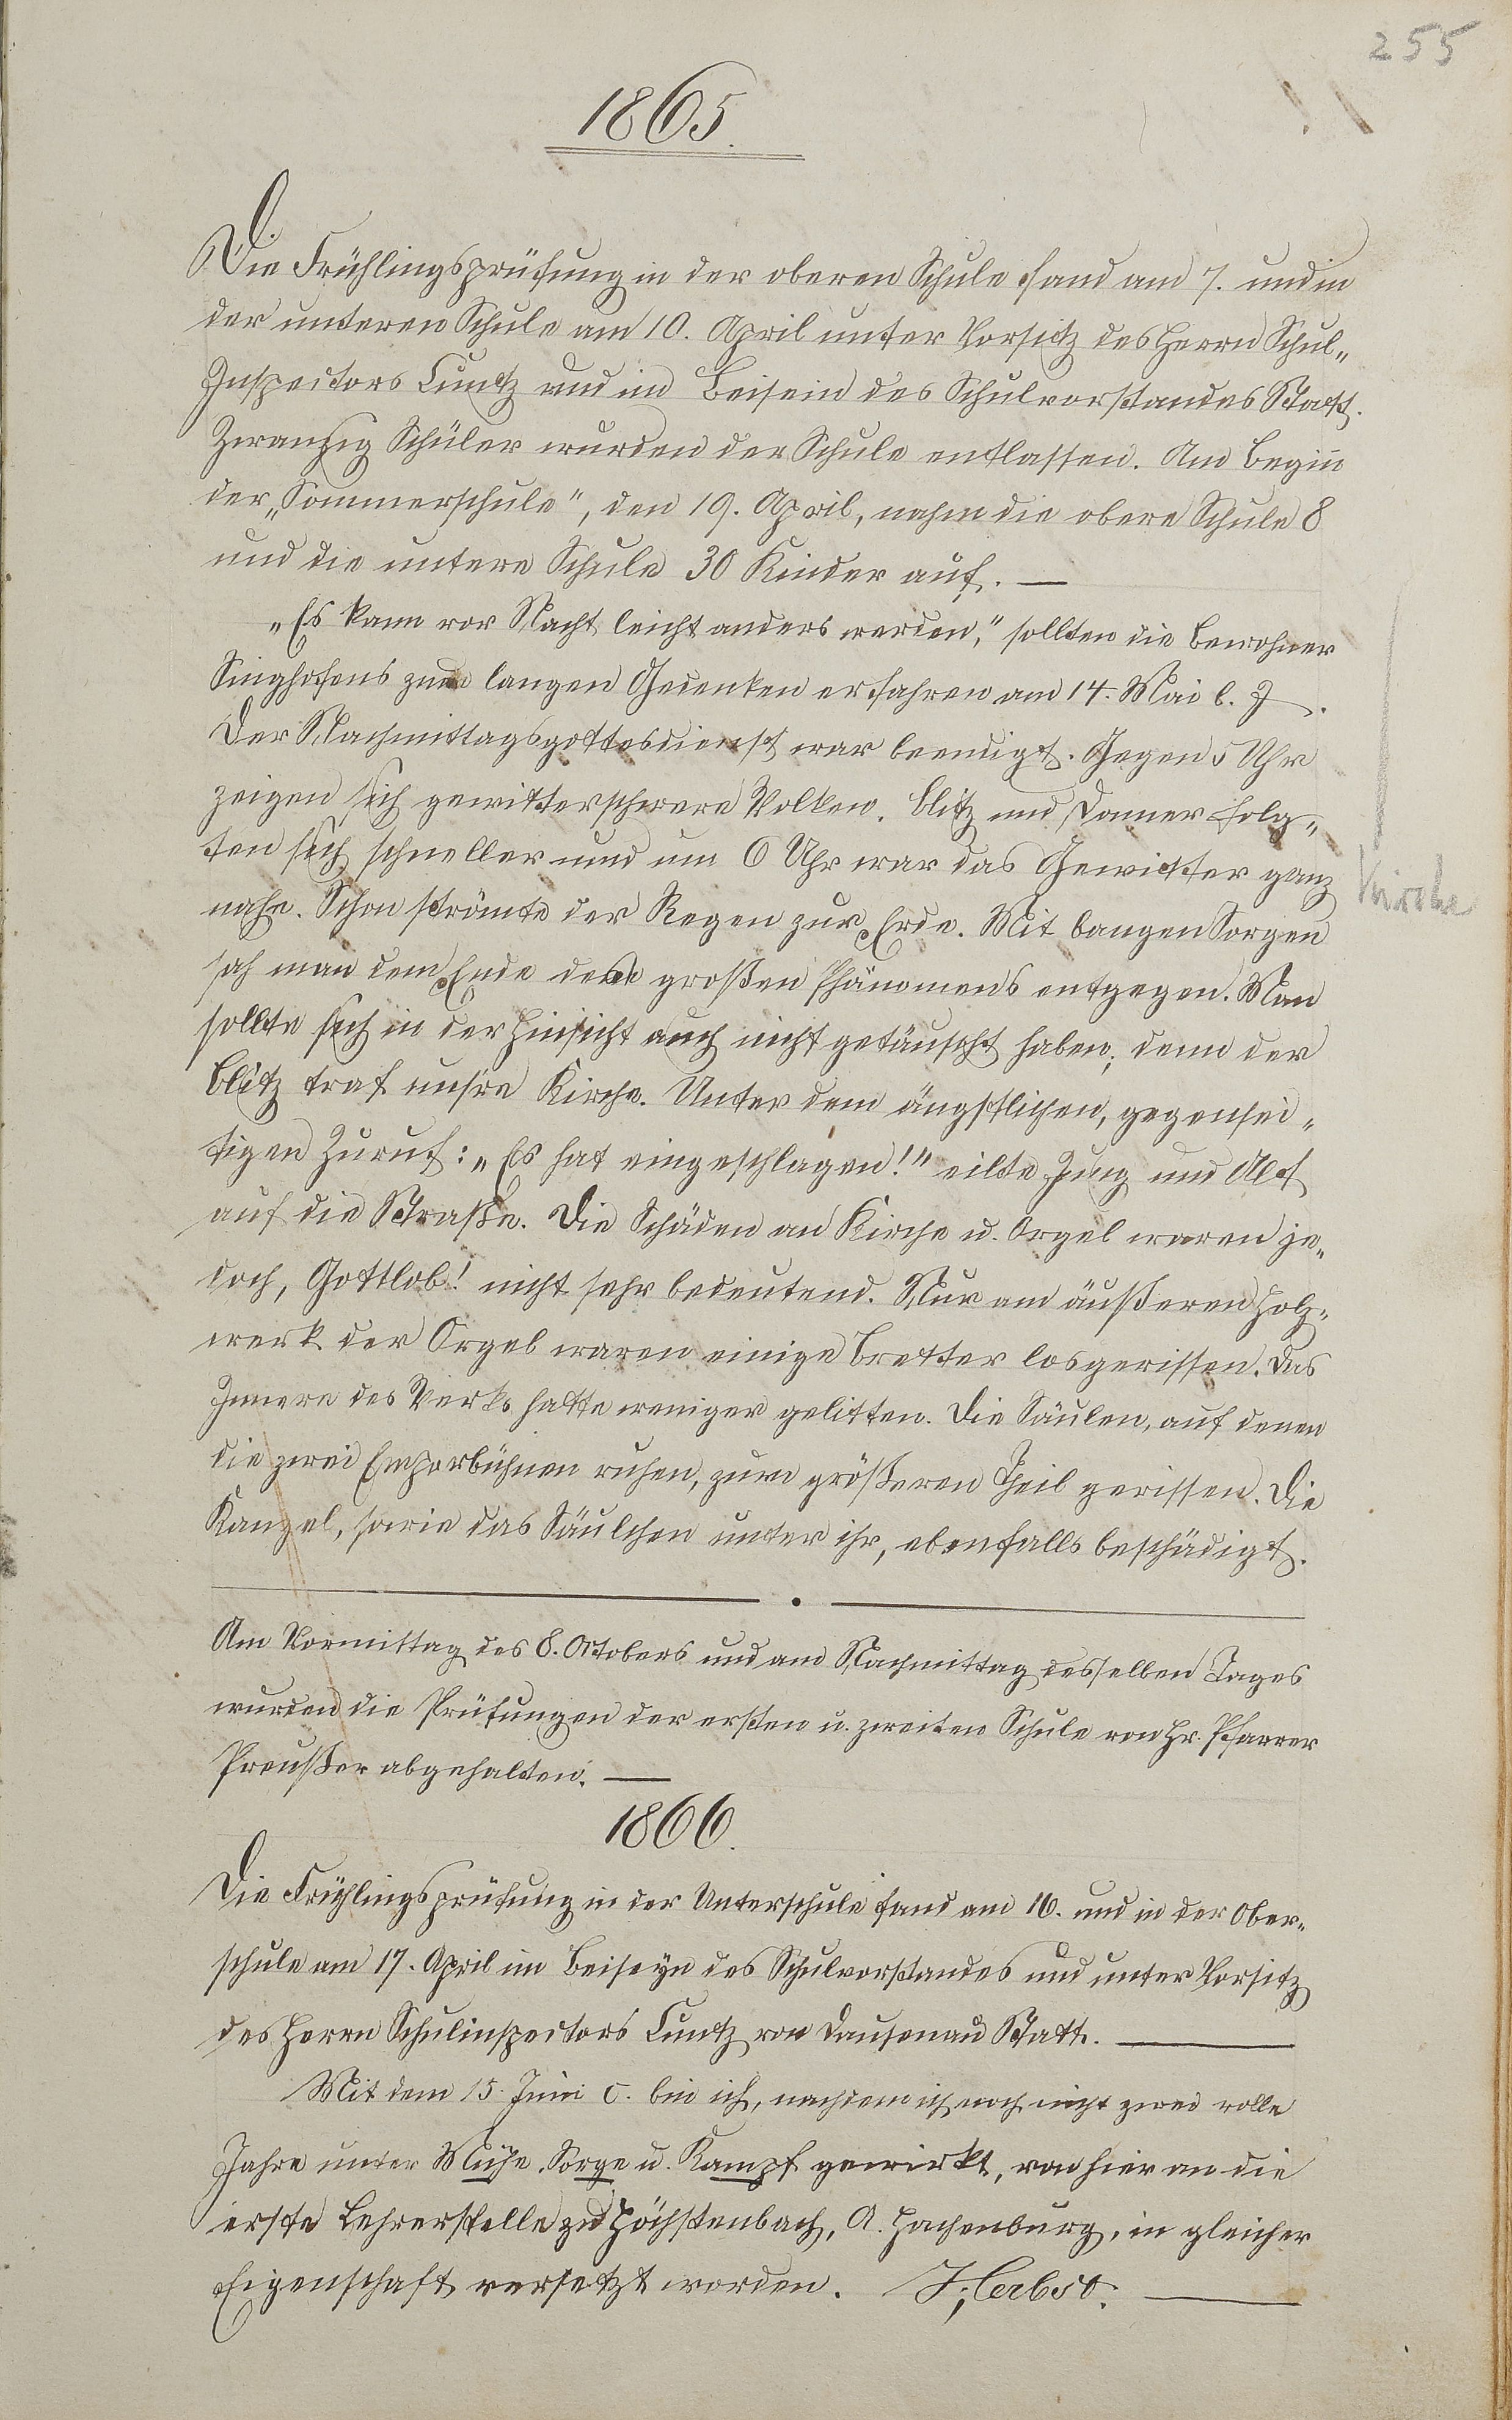 255
1865.
Die Frühlingsprüfung in der oberen Schule fand am 7. und in
der unteren Schule am 10. April unter Vorsitz des Herrn Schul-
Inspectors Cuntz und im Beisein des Schulvorstandes Statt.
Zwanzig Schüler wurden der Schule entlassen. Am Begiñ
der „Sommerschule", den 19. April, nahm die obere Schule 8
und die untere Schule 30 Kinder auf. —
„Es kann vor Nacht leicht anders werden," sollten die Bewohner
Singhofens zum langen Gedenken erfahren am 14. Mai l. J.
Der Nachmittagsgottesdienst war beendigt. Gegen 5 Uhr
zeigen sich gewitterschwere Wolken. Blitz und Donner folg-
ten sich schneller und um 6 Uhr war das Gewitter ganz
Kirche
nahe. Schon strömte der Regen zur Erde. Mit bangen Sorgen
sah man dem Ende des großen Phänomens entgegen. Man
sollte sich in der Hinsicht auch nicht getäuscht haben; denn der
Blitz traf uns're Kirche. Unter dem ängstlichen, gegensei-
tigen Zuruf: „Es hat eingeschlagen!" eilte Jung und Alt
auf die Straße. Die Schäden an Kirche u. Orgel waren je-
doch, Gottlob! nicht sehr bedeutend. Nur am äußeren Holz-
werk der Orgel waren einige Bretter losgerissen. Das
Innere des Werks hatte weniger gelitten. Die Säulen, auf denen
die zwei Emporbühnen ruhen, zum größeren Theil gerissen. Die
Kanzel, sowie das Säulchen unter ihr, ebenfalls beschädigt.
Am Vormittag des 8. Octobers und am Nachmittag desselben Tages
wurden die Prüfungen der ersten u. zweiten Schule von Hr. Pfarrer
Preußer abgehalten. —
1866.
Die Frühlingsprüfung in der Unterschule fand am 16. und in der Ober-
schule am 17. April im Beiseyn des Schulvorstandes und unter Vorsitz
des Herrn Schulinspectors Cuntz von Dausenau Statt. —
Mit dem 15. Juni c. bin ich, nachdem ich noch nicht zwei volle
Jahre unter Mühe, Sorge u. Kampf gewirkt, von hier an die
erste Lehrerstelle zu Höchstenbach, A. Hachenburg, in gleicher
Eigenschaft versetzt worden. Herbst. —